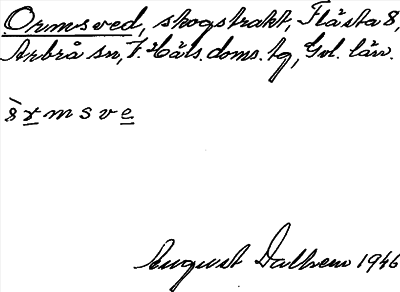 Ormsved, skogstrakt, Flästa 8,
Arbrå sn, V. Häls. doms. tg, Gvl. län.
ò̈rmsve
August Dalhem 1946